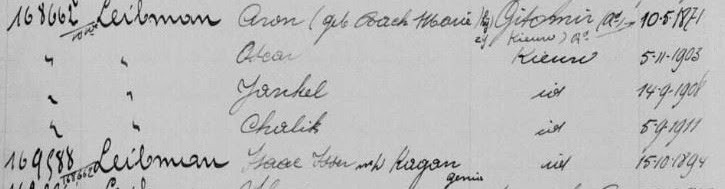 168662 Leibman Aron (geb Bach Marie) Gitomir 10-5-1871
" " Oscar Kieuw 5-11-1903
" " Jankel id 14-9-1908
" " Chalik id 5-9-1911
169588 Leibman Isaac Isser Kagan id 15-10-1894
168662 genie